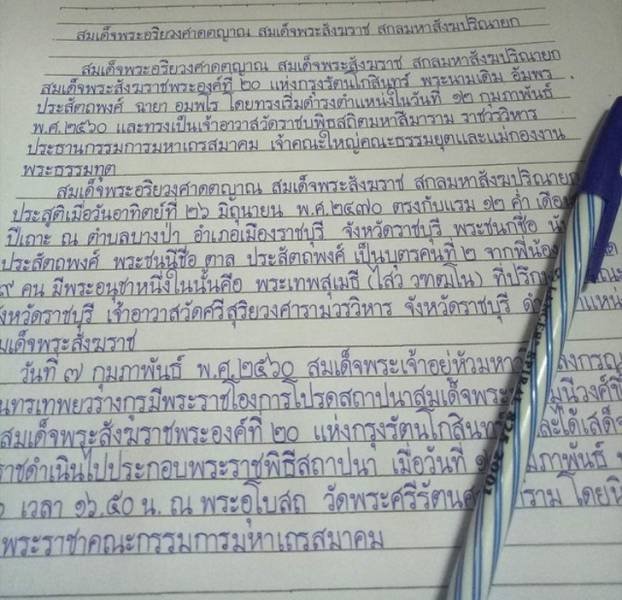 สมเด็จพระอริยวงศาคตญาณ สมเด็จพระสังฆราช สกลมหาสังฆปริณายก
สมเด็จพระอริยวงศาคตญาณ สมเด็จพระสังฆราช สกลมหาสังฆปริณายก
สมเด็จพระสังฆราชพระองค์ที่ ๒๐ แห่งกรุงรัตนโกสินทร์ พระนามเดิม อัมพร
ประสัตถพงศ์ ฉายา อมฺพโร โดยทรงเริ่มดำรงตำแหน่งในวันที่ ๑๒ กุมภาพันธ์
พ.ศ.๒๕๖๐ และทรงเป็นเจ้าอาวาสวัดราชบพิธสถิตมหาสีมาราม ราชวรวิหาร
ประธานกรรมการมหาเถรสมาคม เจ้าคณะใหญ่คณะธรรมยุตและแม่กองงาน
พระธรรมทูต
สมเด็จพระอริยวงศาคตญาณ สมเด็จพระสังฆราช สกลมหาสังฆปริณายก
ประสูติเมื่อวันอาทิตย์ที่ ๒๖ มิถุนายน พ.ศ.๒๔๗๐ ตรงกับแรม ๑๒ ค่ำ เดือน
ปีเถาะ ณ ตำบลบางป่า อำเภอเมืองราชบุรี จังหวัดราชบุรี พระชนกชื่อ
ประสัตถพงศ์ พระชนนีชื่อ ตาล ประสัตถพงศ์ เป็นบุตรคนที่ ๒ จากพี่น้อง
๙ คน มีพระอนุชาหนึ่งในนั้นคือ พระเทพสุเมธี (ไสว วฑฺฒโน) ที่
จังหวัดราชบุรี เจ้าอาวาสวัดศรีสุริยวงศารามวรวิหาร จังหวัดราชบุรี
สมเด็จพระสังฆราช
วันที่ ๗ กุมภาพันธ์ พ.ศ.๒๕๖๐ สมเด็จพระเจ้าอยู่หัวมหา
มีพระราชโองการโปรดสถาปนาสมเด็จพระ
สมเด็จพระสังฆราชพระองค์ที่ ๒๐ แห่งกรุงรัตนโกสินทร์ และได้เสด็จ
ราชดำเนินไปประกอบพระราชพิธีสถาปนา เมื่อวันที่
เวลา ๑๖.๕๐ น. ณ พระอุโบสถ วัดพระศรีรัตน โดย
พระราชาคณะกรรมการมหาเถรสมาคม